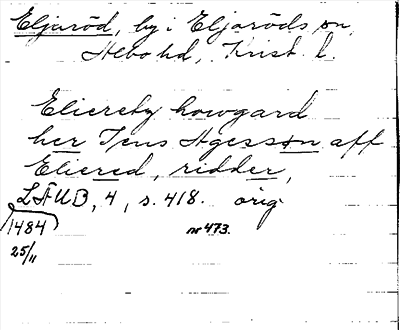 Eljaröd, by i Eljaröds sn,
Albo hd, Krist. l.
Eliereby howgard
her Jens Agessøn aff
Eliered, ridder,
LÄUB, 4, s. 418. orig
1484
25/11
nr 473.